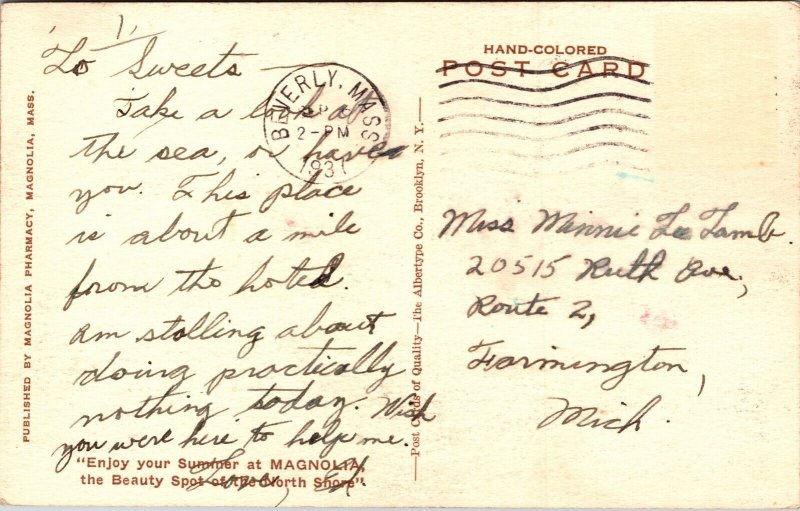 1,
To Sweets —
Take a look at
the sea, or have
you. This place
is about a mile
from the hotel.
Am stolling about
doing practically
nothing today. Wish
you were here to help me.
Love,
"Enjoy your Summer at MAGNOLIA,
the Beauty Spot of the North Shore".
PUBLISHED BY MAGNOLIA PHARMACY, MAGNOLIA, MASS.
BEVERLY, MASS
2-PM
1937
Post Cards of Quality—The Albertype Co., Brooklyn, N. Y.
HAND-COLORED
POST CARD
Miss Minnie La Tamb
20515 Ruth Ave,
Route 2,
Farmington,
Mich.